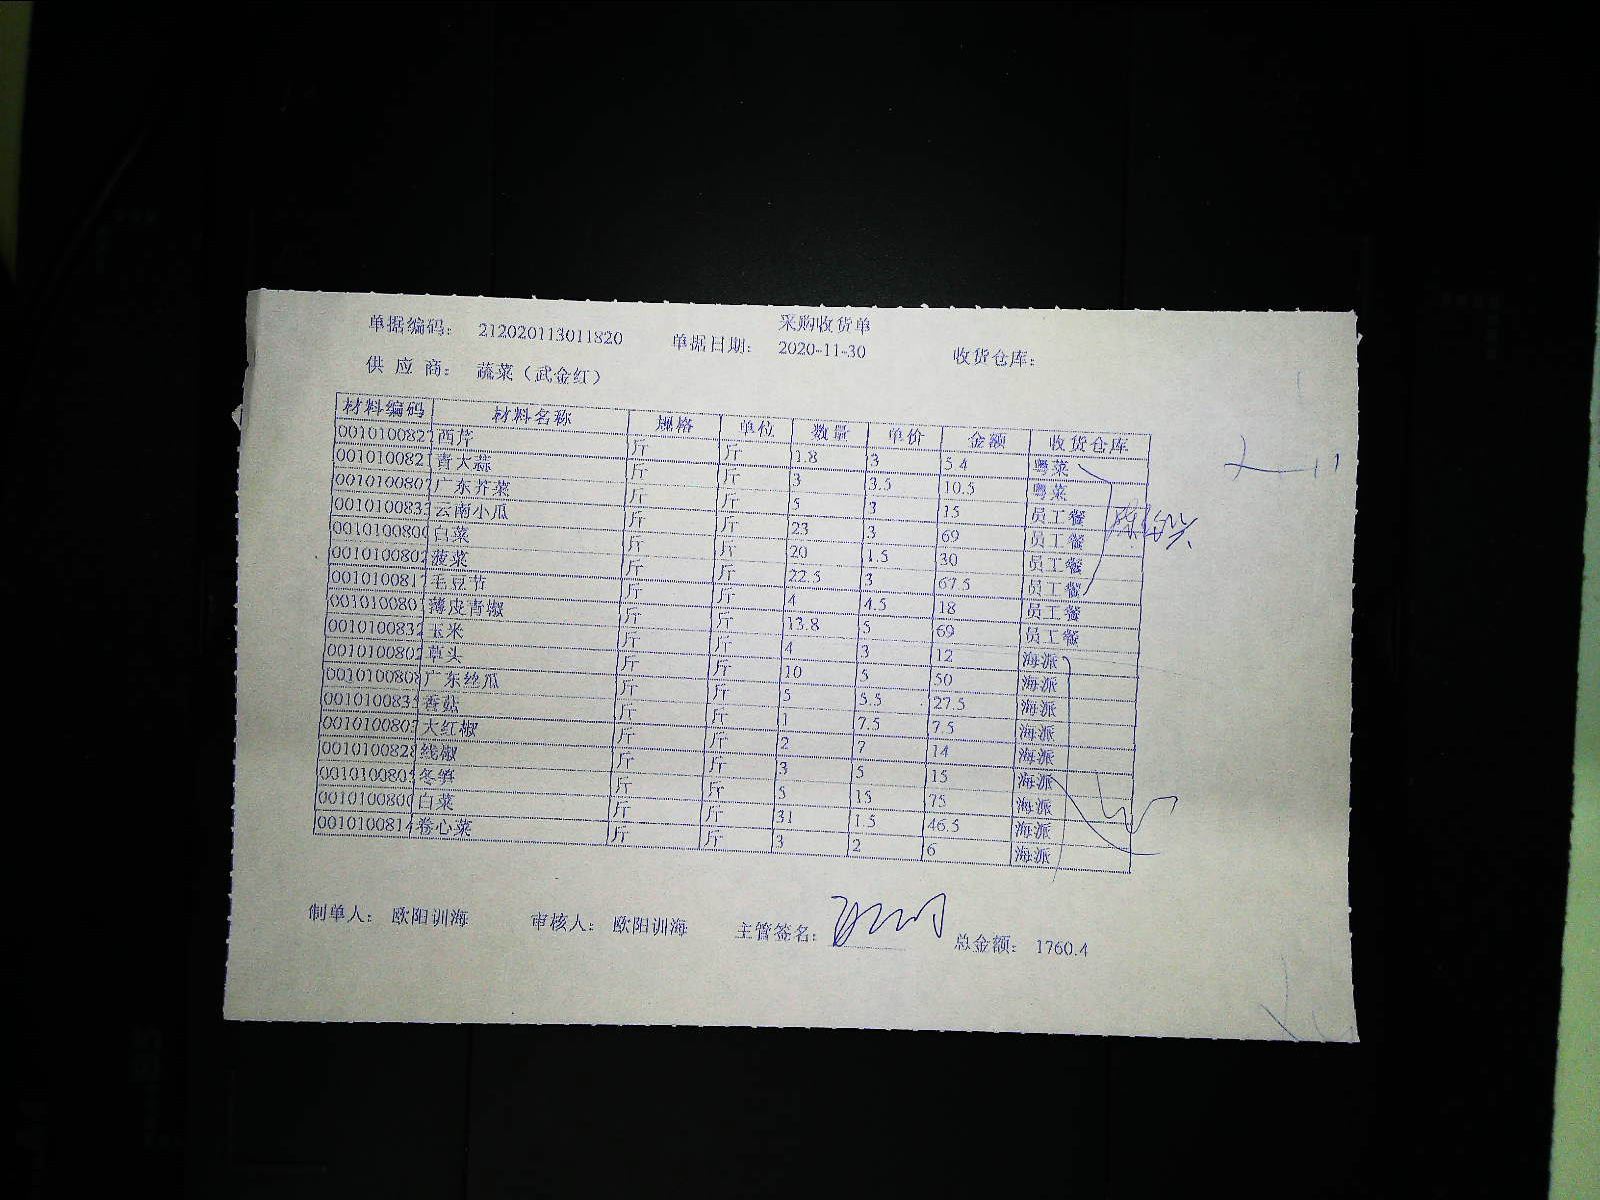 采购收货单
单据编码： 212020113011820 单据日期： 2020-11-30 收货仓库：
供 应 商： 蔬菜（武金红）
材料编码 材料名称 规格 单位 数量 单价 金额 收货仓库
0010100827 西芹 斤 斤 1.8 3 5.4 粤菜
0010100821 青大蒜 斤 斤 3 3.5 10.5 粤菜
0010100807 广东芥菜 斤 斤 5 3 15 员工餐
0010100833 云南小瓜 斤 斤 23 3 69 员工餐
0010100800 白菜 斤 斤 20 1.5 30 员工餐
0010100802 菠菜 斤 斤 22.5 3 67.5 员工餐
0010100817 毛豆节 斤 斤 4 4.5 18 员工餐
0010100801 薄皮青椒 斤 斤 13.8 5 69 员工餐
0010100832 玉米 斤 斤 4 3 12 海派
0010100802 草头 斤 斤 10 5 50 海派
0010100808 广东丝瓜 斤 斤 5 5.5 27.5 海派
0010100835 香菇 斤 斤 1 7.5 7.5 海派
0010100803 大红椒 斤 斤 2 7 14 海派
0010100828 线椒 斤 斤 3 5 15 海派
0010100805 冬笋 斤 斤 5 15 75 海派
0010100800 白菜 斤 斤 31 1.5 46.5 海派
0010100814 卷心菜 斤 斤 3 2 6 海派
制单人： 欧阳训海 审核人： 欧阳训海 主管签名： 总金额： 1760.4